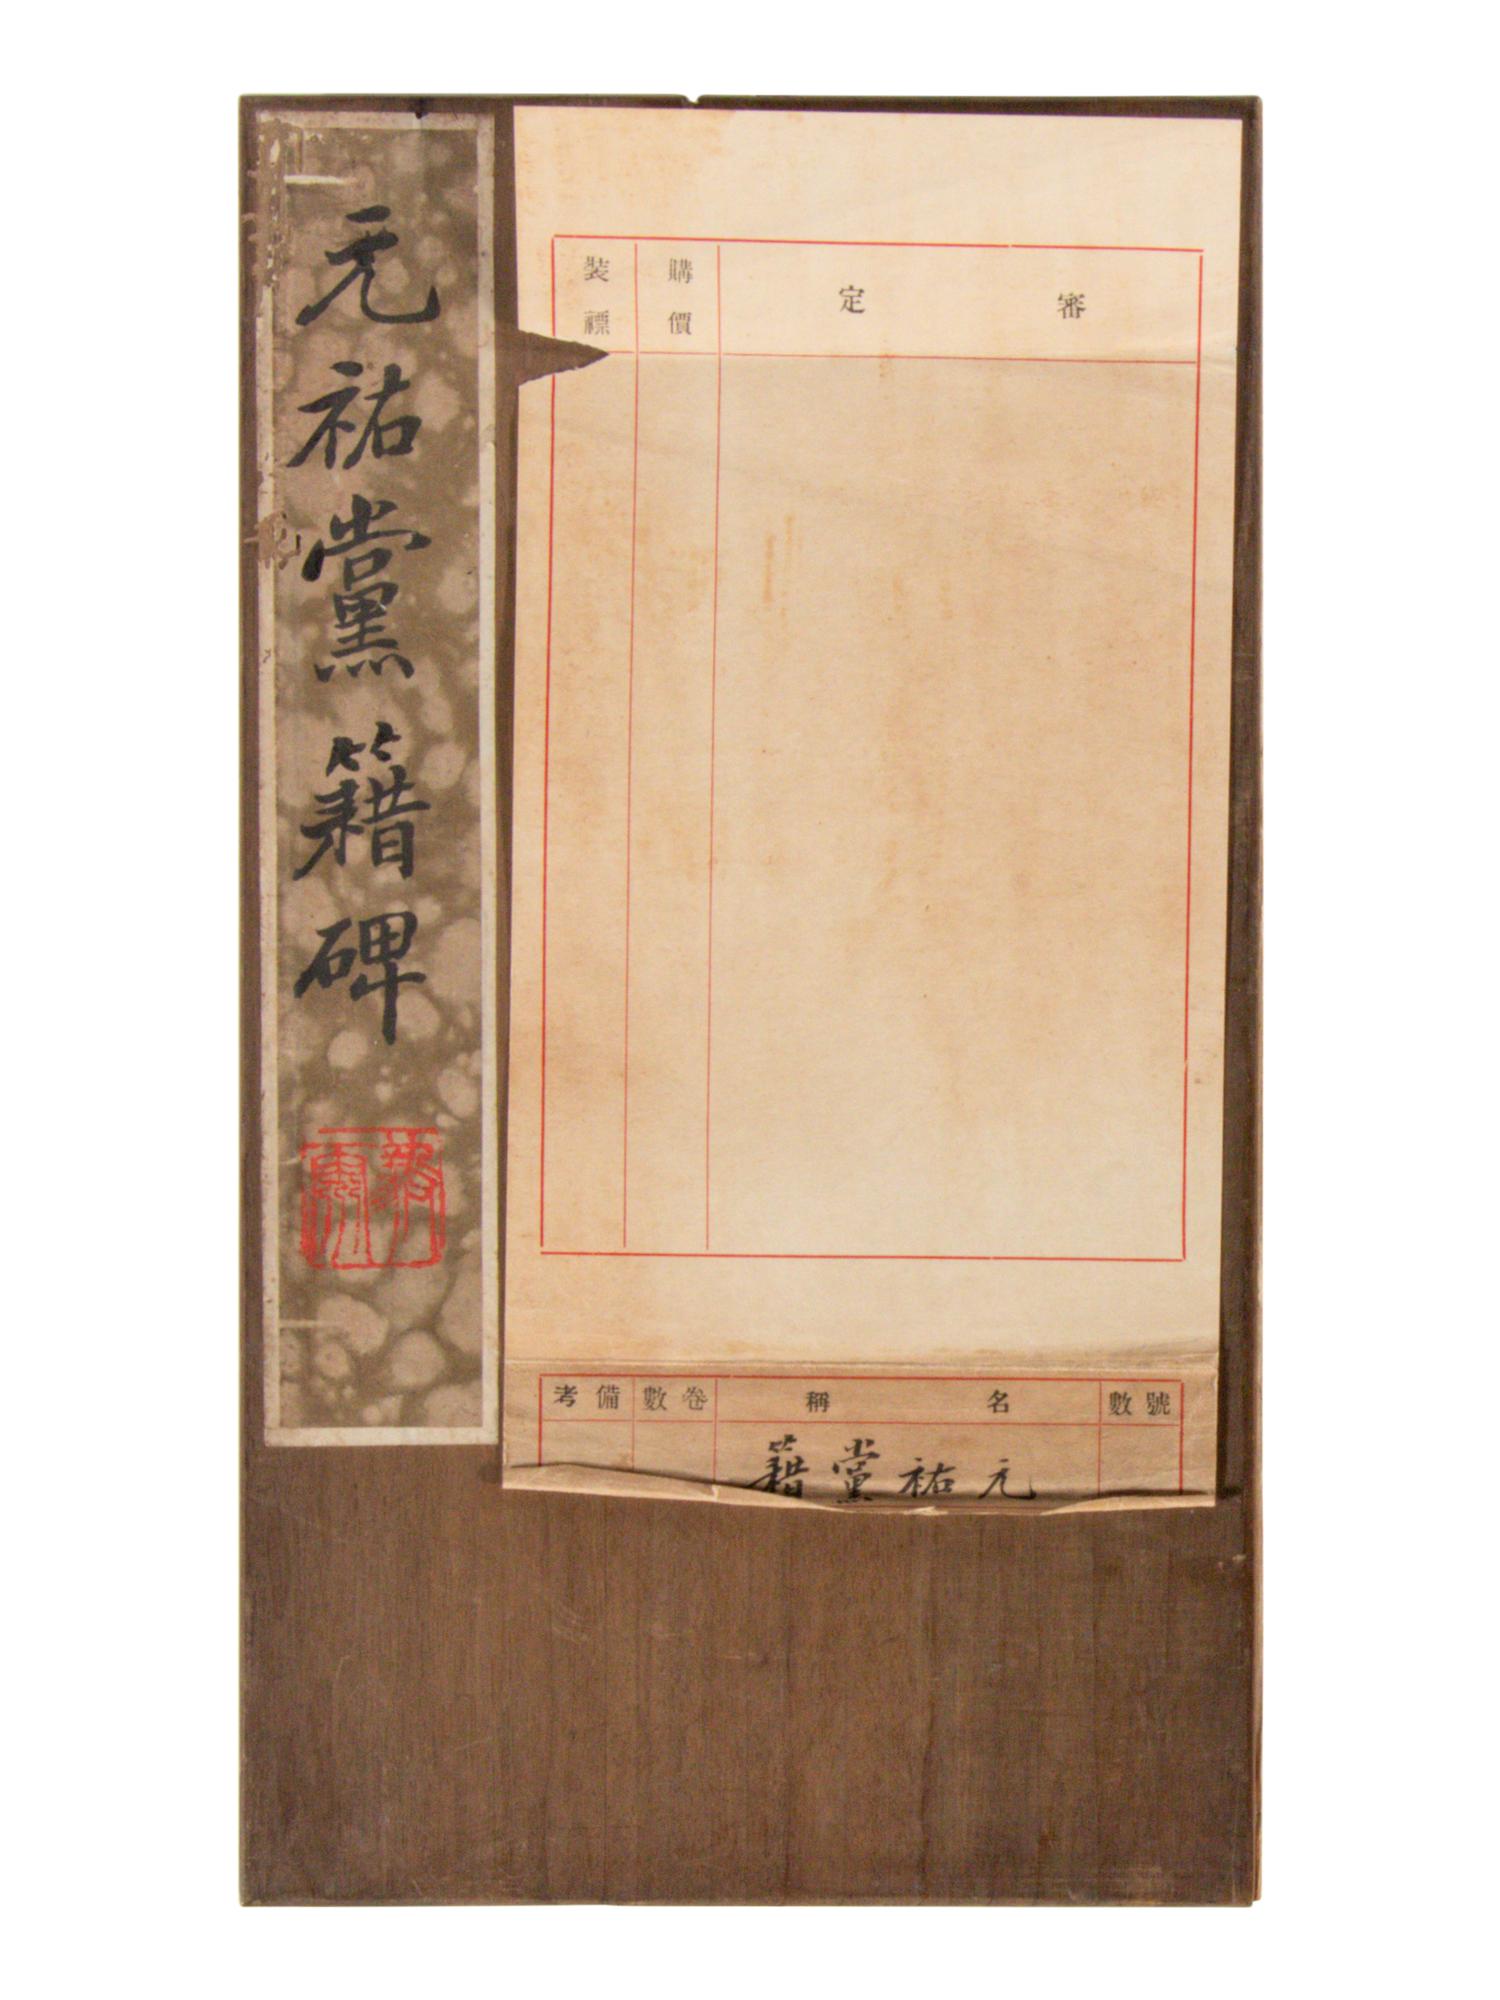 元祐黨籍碑
審定
購價
装褾
號數
名稱
卷數
備考
元祐黨籍